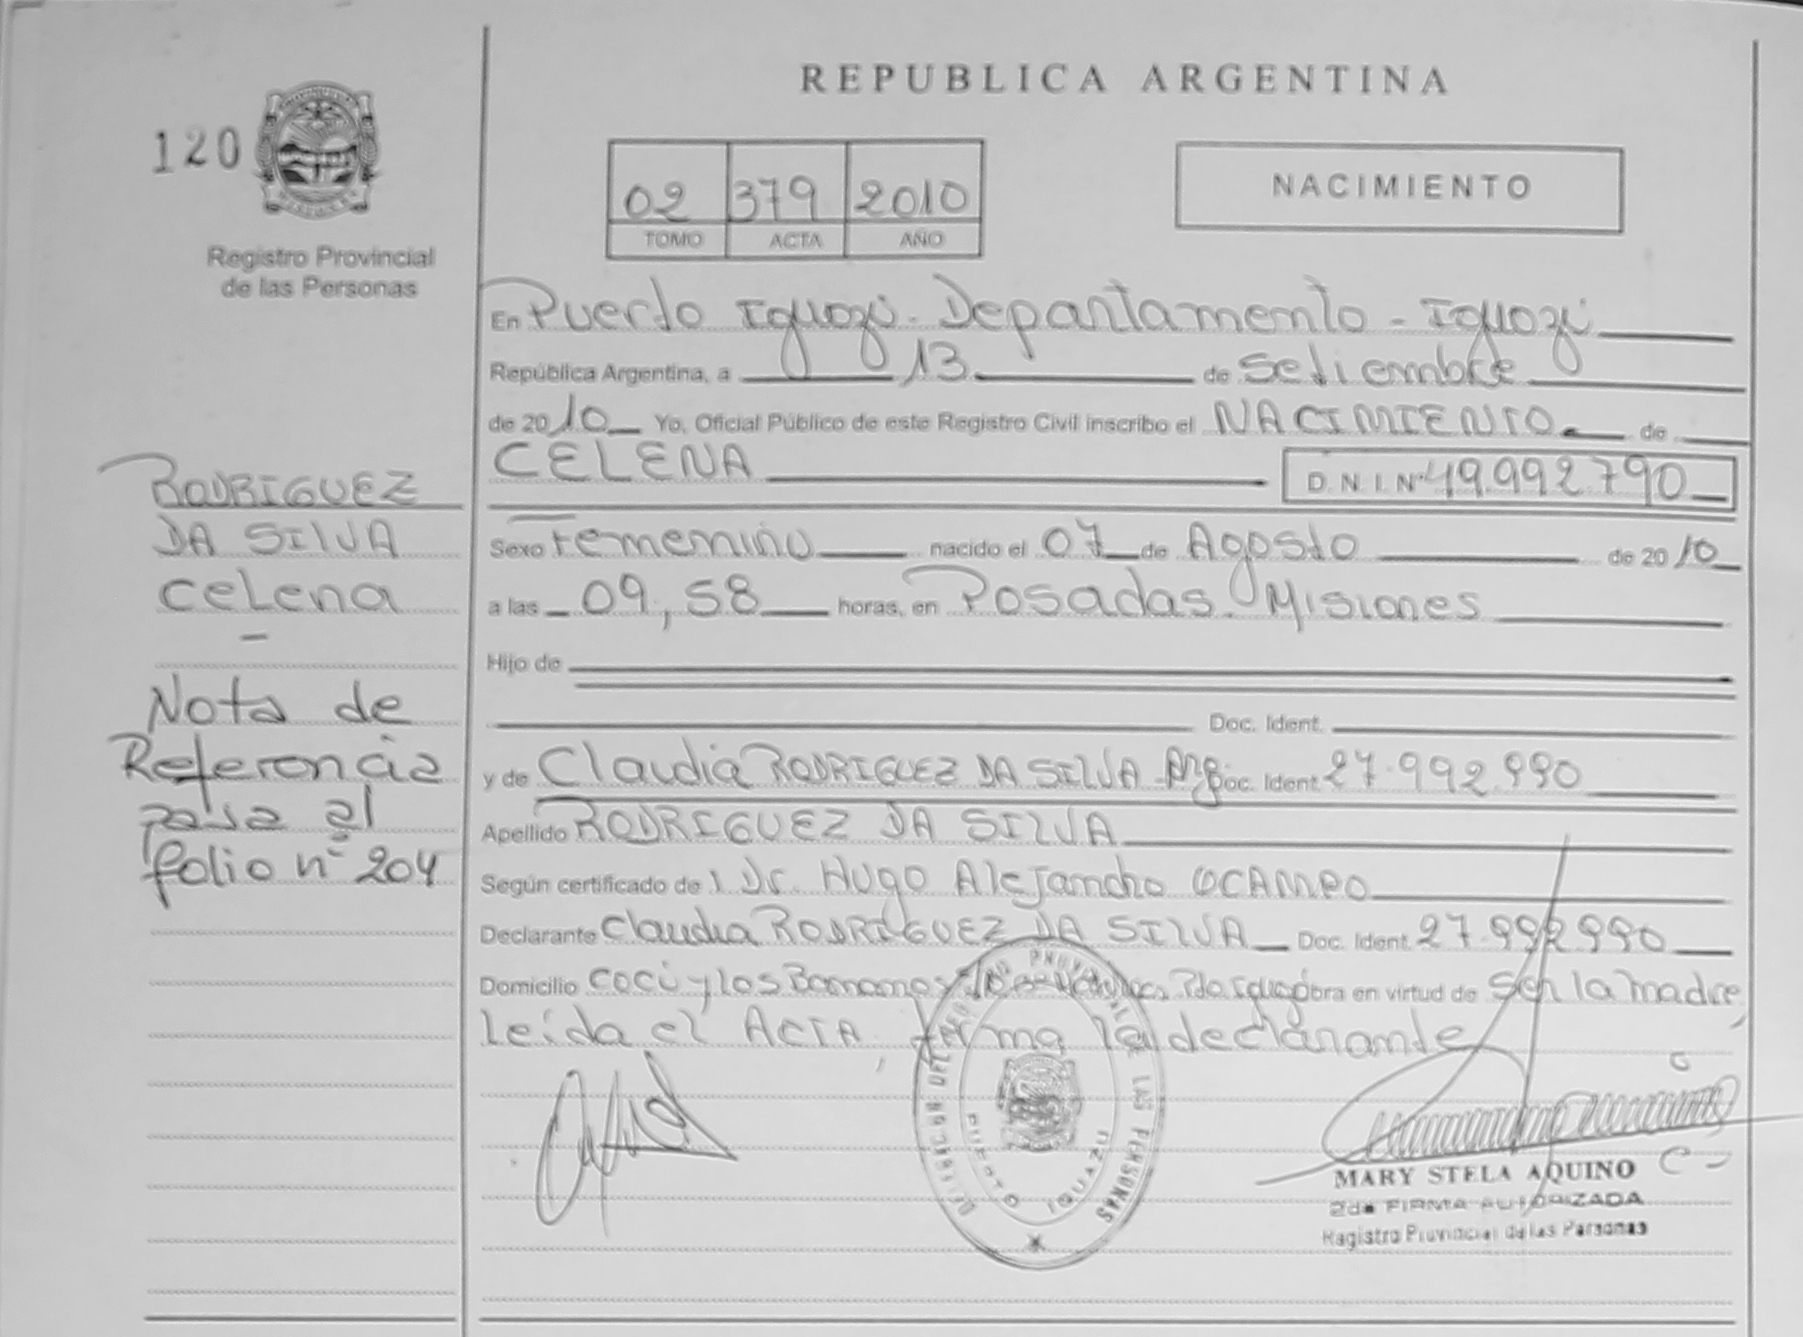 REPUBLICA ARGENTINA
120
02 379 2010
TOMO ACTA AÑO
NACIMIENTO
Registro Provincial
de las Personas
En Puerto Iguazú. Departamento - Iguazú
República Argentina, a 13 de Setiembre
de 2010 Yo, Oficial Público de este Registro Civil inscribo el NACIMIENTO de
CELENA D.N.I. Nº 49.992.790
Sexo Femenino nacido el 07 de Agosto de 2010
a las 09,58 horas, en Posadas. Misiones
Hijo de
Doc. Ident.
y de Claudia RODRIGUEZ DA SILVA - Arg Doc. Ident. 27.992.990
Apellido RODRIGUEZ DA SILVA
Según certificado de Dr. Hugo Alejandro OCAMPO
Declarante Claudia RODRIGUEZ DA SILVA Doc. Ident. 27.992.990
Domicilio Cocú y los obra en virtud de Ser la madre,
leída el ACTA, firma la declarante
RODRIGUEZ
DA SILVA
Celena
Nota de
Referencia
pasa al
folio nº 204
PUERTO IGUAZU
MARY STELA AQUINO
2da FIRMA AUTORIZADA
Registro Provincial de las Personas